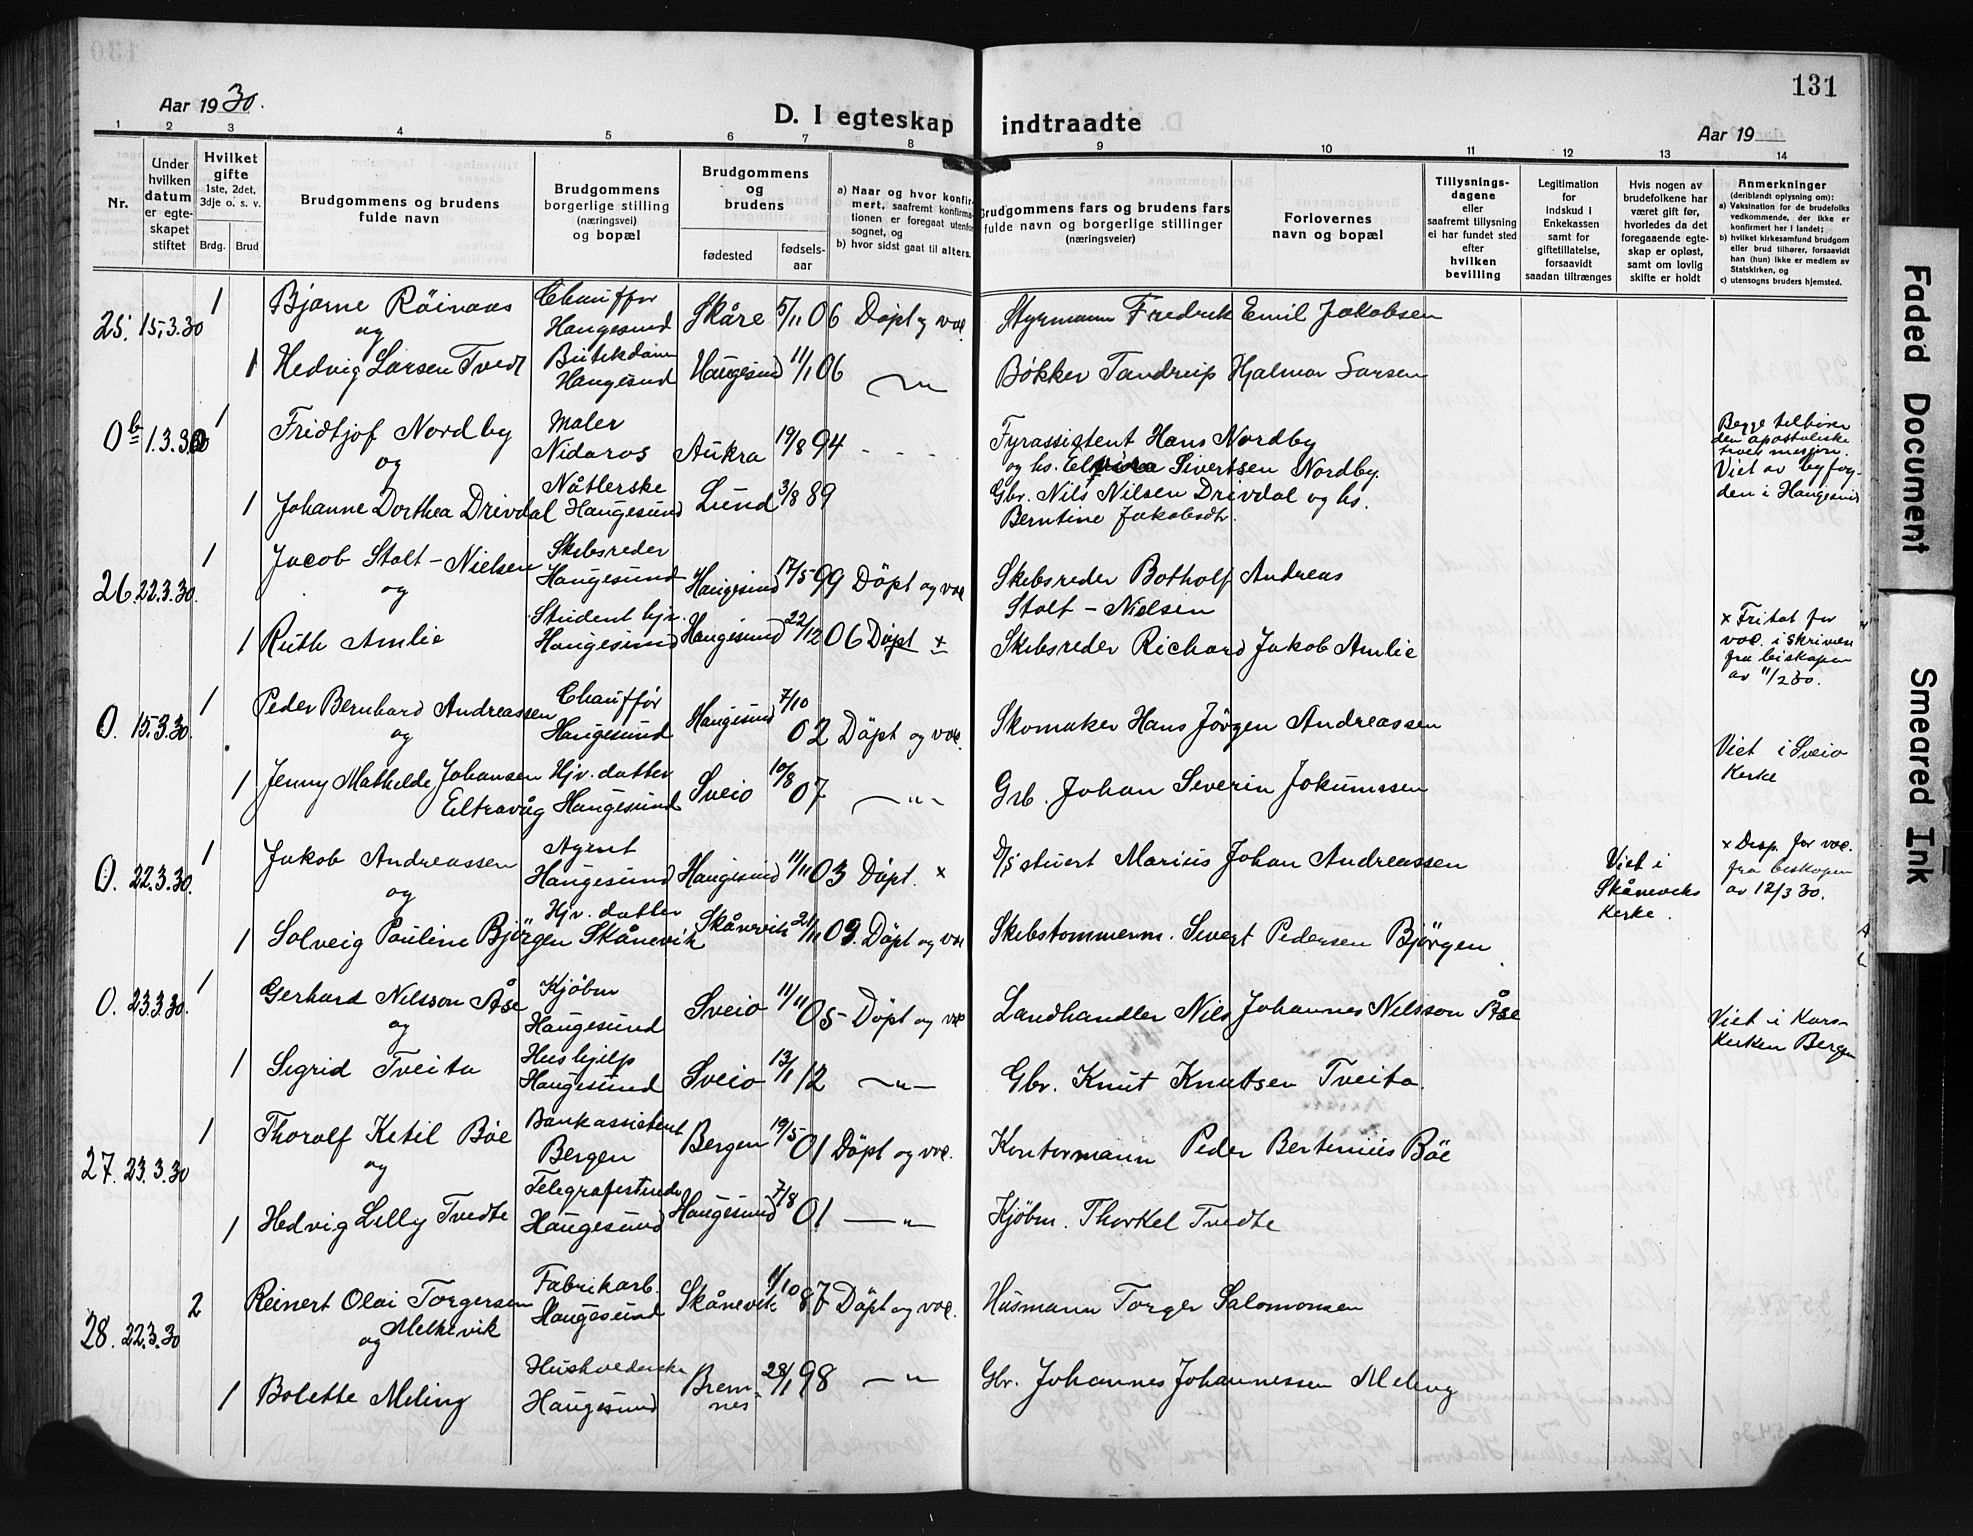 130
131
Aar 1930.
D. I egteskap indtraadte
Aar 19
1 2 3 4 5 6 7 8 9 10 11 12 13 14
Nr.
Under hvilken datum er egteskapet stiftet
Hvilket gifte
1ste, 2det, 3dje o. s. v.
Brdg. Brud
Brudgommens og brudens fulde navn
Brudgommens borgerlige stilling (næringsvei) og bopæl
Brudgommens og brudens
fødested
fødselsaar
a) Naar og hvor konfirmert, saafremt konfirmationen er foregaat utenfor sognet, og
b) hvor sidst gaat til alters.
Brudgommens fars og brudens fars fulde navn og borgerlige stillinger (næringsveier)
Forlovernes navn og bopæl
Tillysningsdagene eller saafremt tillysning ei har fundet sted efter hvilken bevilling
Legitimation for indskud i Enkekassen samt for giftetillatelse, forsaavidt saadan tiltrænges
Hvis nogen av brudefolkene har været gift før, hvorledes da det foregaaende egteskap er opløst, samt om lovlig skifte er holdt
Anmerkninger
(deriblandt oplysning om):
a) Vaksination for de brudefolks vedkommende, der ikke er konfirmert her i landet;
b) hvilket kirkesamfund brudgom eller brud tilhører, forsaavidt han (hun) ikke er medlem av Statskirken, og
c) utensogns bruders hjemsted.
25. 15.3.30 1 Bjarne Röinaas og Chauffør Haugesund Skåre 5/11 06 Döpt og vac. Styrmann Fredrik Emil Jakobsen
1 Hedvig Larsen Tvedt Butikdame Haugesund Haugesund 11/1 06 — " — Bøkker Tandrup Hjalmar Larsen
0b 1.3.30 1 Fridtjof Nordby og Maler Nidaros Aukra 19/8 94 - - - - Fyrassistent Hans Nordby
og hs. Elvira Sivertsen Nordby.
1 Johanne Dorthea Drivdal Nåtlerske Haugesund Lund 3/8 89 Gbr. Nils Nilsen Drivdal og hs.
Berntine Jakobsdtr.
Begge tilhører
den apostoliske
troes mesjon.
Viet av byfog-
den i Haugesund
26. 22.3.30. 1 Jacob Stolt-Nielsen og Skibsreder Haugesund Haugesund 17/5 99 Döpt og vac Skibsreder Botholf Andreas
Stolt-Nielsen
1 Ruth Amlie Student hjv. Haugesund Haugesund 22/12 06 Döpt x Skibsreder Richard Jakob Amlie
x Fritat for
vac. i skrivelse
fra biskopen
av 11/2 30.
0. 15.3.30. 1 Peder Bernhard Andreassen og Chauffør Haugesund Haugesund 7/10 02 Döpt og vac. Skomaker Hans Jörgen Andreassen
1 Jenny Mathilde Johansen Eltravåg Hjv. datter Haugesund Sveio 10/8 07 — " — Grb. Johan Severin Jokumssen
Viet i Sveio
Kerke
0. 22.3.30. 1 Jakob Andreassen og Agent Haugesund Haugesund 11/11 03 Döpt. x D/S stuert Marius Johan Andreassen
Viet i
Skåneviks
Kerke.
x Disp. for vac.
fra biskopen
av 12/3 30.
1 Solveig Pauline Björgen Hjv. datter Skånevik Skånevik 21/11 09. Döpt og vac Skibstommerm. Sivert Pedersen Björgen
0. 23.3.30. 1 Gerhard Nilsson Åse og Kjøbm Haugesund Sveio 11/11 05 Döpt og vac Landhandler Nils Johannes Nilsson Åse
Viet i Kors-
kerken Bergen
1 Sigrid Tveita Hushjelp Haugesund Sveio 13/1 12 — " — Gbr. Knut Knutsen Tveita.
27. 23.3.30 1 Thoralf Ketil Böe og Bankassistent Bergen Bergen 19/5 01 Döpt og vac. Kontormann Peder Bertinius Böe
1 Hedvig Lilly Tvedte Telegrafistinde Haugesund Haugesund 7/8 01 — " — Kjøbm. Thorkel Tvedte
28. 22.3.30 2 Reinert Olai Torgersen Melkevik og Fabrikarb. Haugesund Skånevik 11/10 87 Döpt og vac. Husmann Torger Salomonsen
1 Bolette Meling Husholderske Haugesund Bremnes 28/1 98 — " — Gbr. Johannes Johannessen Meling
Faded Document
Smeared Ink